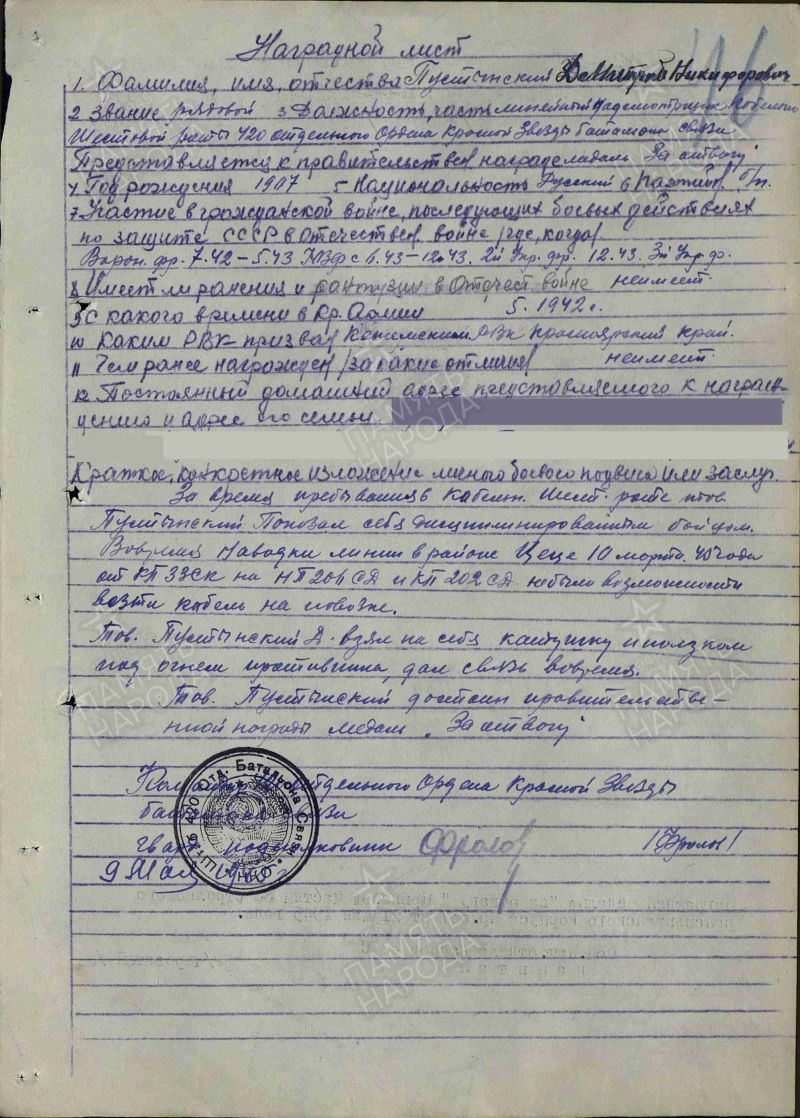 Наградной лист
1. Фамилия, имя, отчества Пустынский Дмитрий Никифорович
2 Звание рядовой 3 Должность, часть линейный надсмотрщик кабельно
Шестовой роты 420 отдельного Ордена Красной Звезды батальона связи
Представляется к правительствен награде медаль "За отвагу"
4 Год рождения 1907 5 Национальность Русский 6 Партийн. б/п.
7 Участие в гражданской войне, последующих боевых действиях
по защите СССР в Отечествен войне /где, когда/
Ворон. фр. 7.42 – 5.43 ЮЗФ с 6.43 – 12.43. 2й Укр. фр. 12.43. 3й Укр. ф.
8 Имеет ли ранения и контузии в Отечест. войне неимеет.
9 С какого времени в Кр. Армии 5. 1942 г.
10 Каким РВК призван РВК Красноярский край.
11 Чем ранее награжден /за какие отличия/ неимеет.
12 Постоянный домашний адрес представляемого к награж-
дению и адрес его семьи
Краткое, конкретное изложение личного боевого подвига или заслуг.
За время пребывания в кабельн. шест. роте тов.
Пустынский Показал себя дисциплинированным бойцом.
Вовремя наводки линии в районе Цеце 10 марта 45 года
от КП 33СК на НП 206 СД и КП 202 СД. небыло возможности
везти кабель на повозке.
Тов. Пустынский Д. взял на себя катушку и ползком
под огнем противника, дал связь вовремя.
Тов. Пустынский достоин правительстве-
нной награды медаль "За отвагу"
отдельного Ордена Красной Звезды
связи
гвар подполковник Фролов /Фролов/
9 Мая
Штаб 420 Отд. Батальона Связи
ПАМЯТЬ НАРОДА